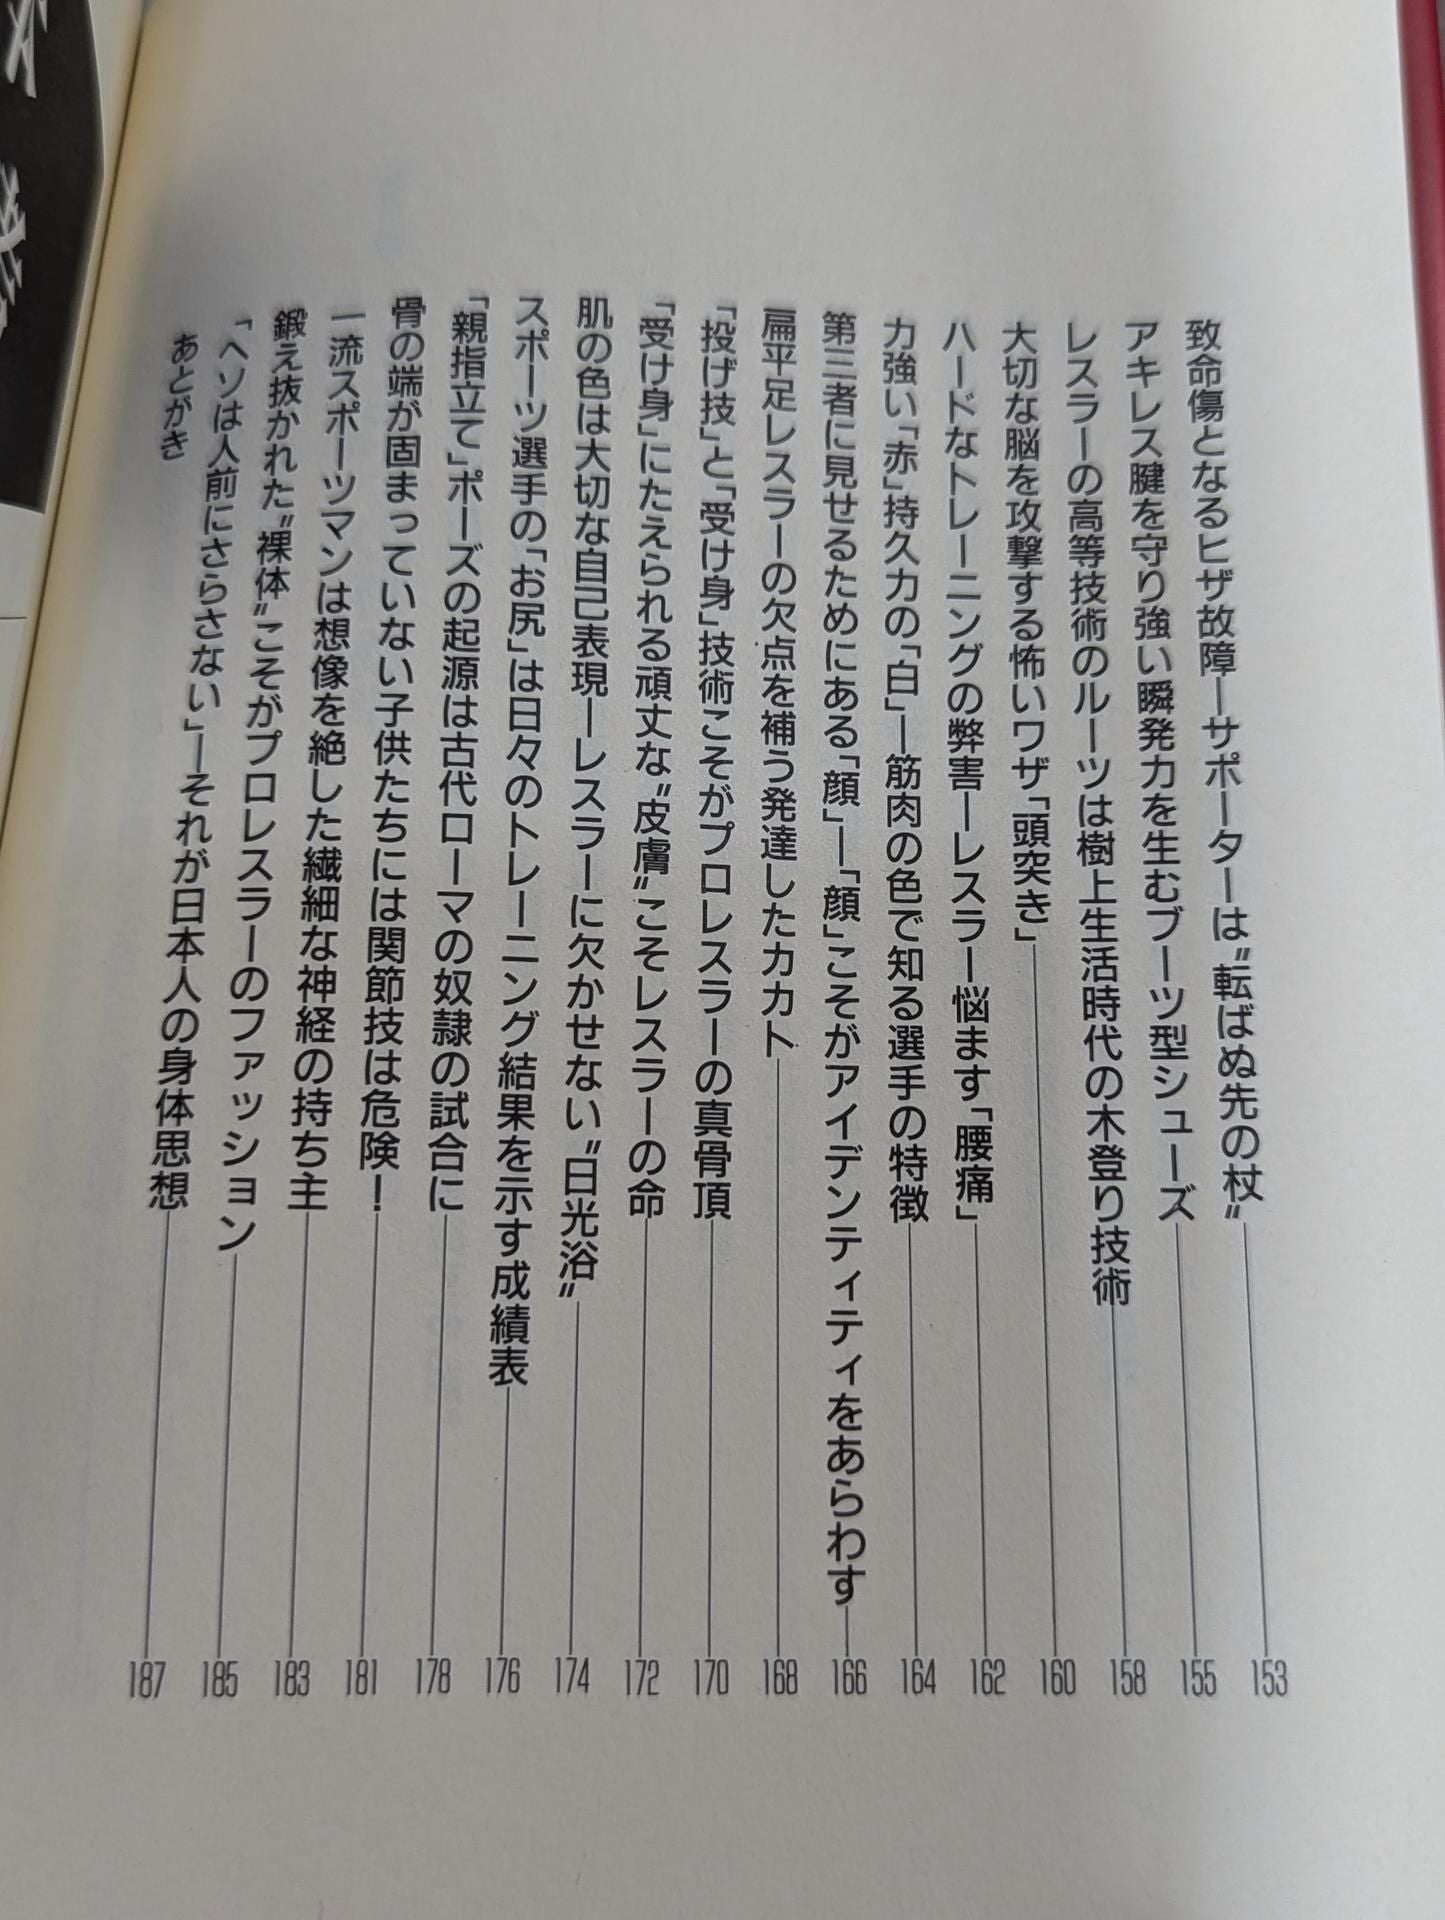 致命傷となるヒザ故障―サポーターは〝転ばぬ先の杖〟 153
アキレス腱を守り強い瞬発力を生むブーツ型シューズ 155
レスラーの高等技術のルーツは樹上生活時代の木登り技術 158
大切な脳を攻撃する怖いワザ「頭突き」 160
ハードなトレーニングの弊害―レスラー悩ます「腰痛」 162
力強い「赤」持久力の「白」―筋肉の色で知る選手の特徴 164
第三者に見せるためにある「顔」―「顔」こそがアイデンティティをあらわす 166
扁平足レスラーの欠点を補う発達したカカト 168
「投げ技」と「受け身」技術こそがプロレスラーの真骨頂 170
「受け身」にたえられる頑丈な〝皮膚〟こそレスラーの命 172
肌の色は大切な自己表現―レスラーに欠かせない〝日光浴〟 174
スポーツ選手の「お尻」は日々のトレーニング結果を示す成績表 176
「親指立て」ポーズの起源は古代ローマの奴隷の試合に 178
骨の端が固まっていない子供たちには関節技は危険! 181
一流スポーツマンは想像を絶した繊細な神経の持ち主 183
鍛え抜かれた〝裸体〟こそがプロレスラーのファッション 185
「ヘソは人前にさらさない」―それが日本人の身体思想 187
あとがき